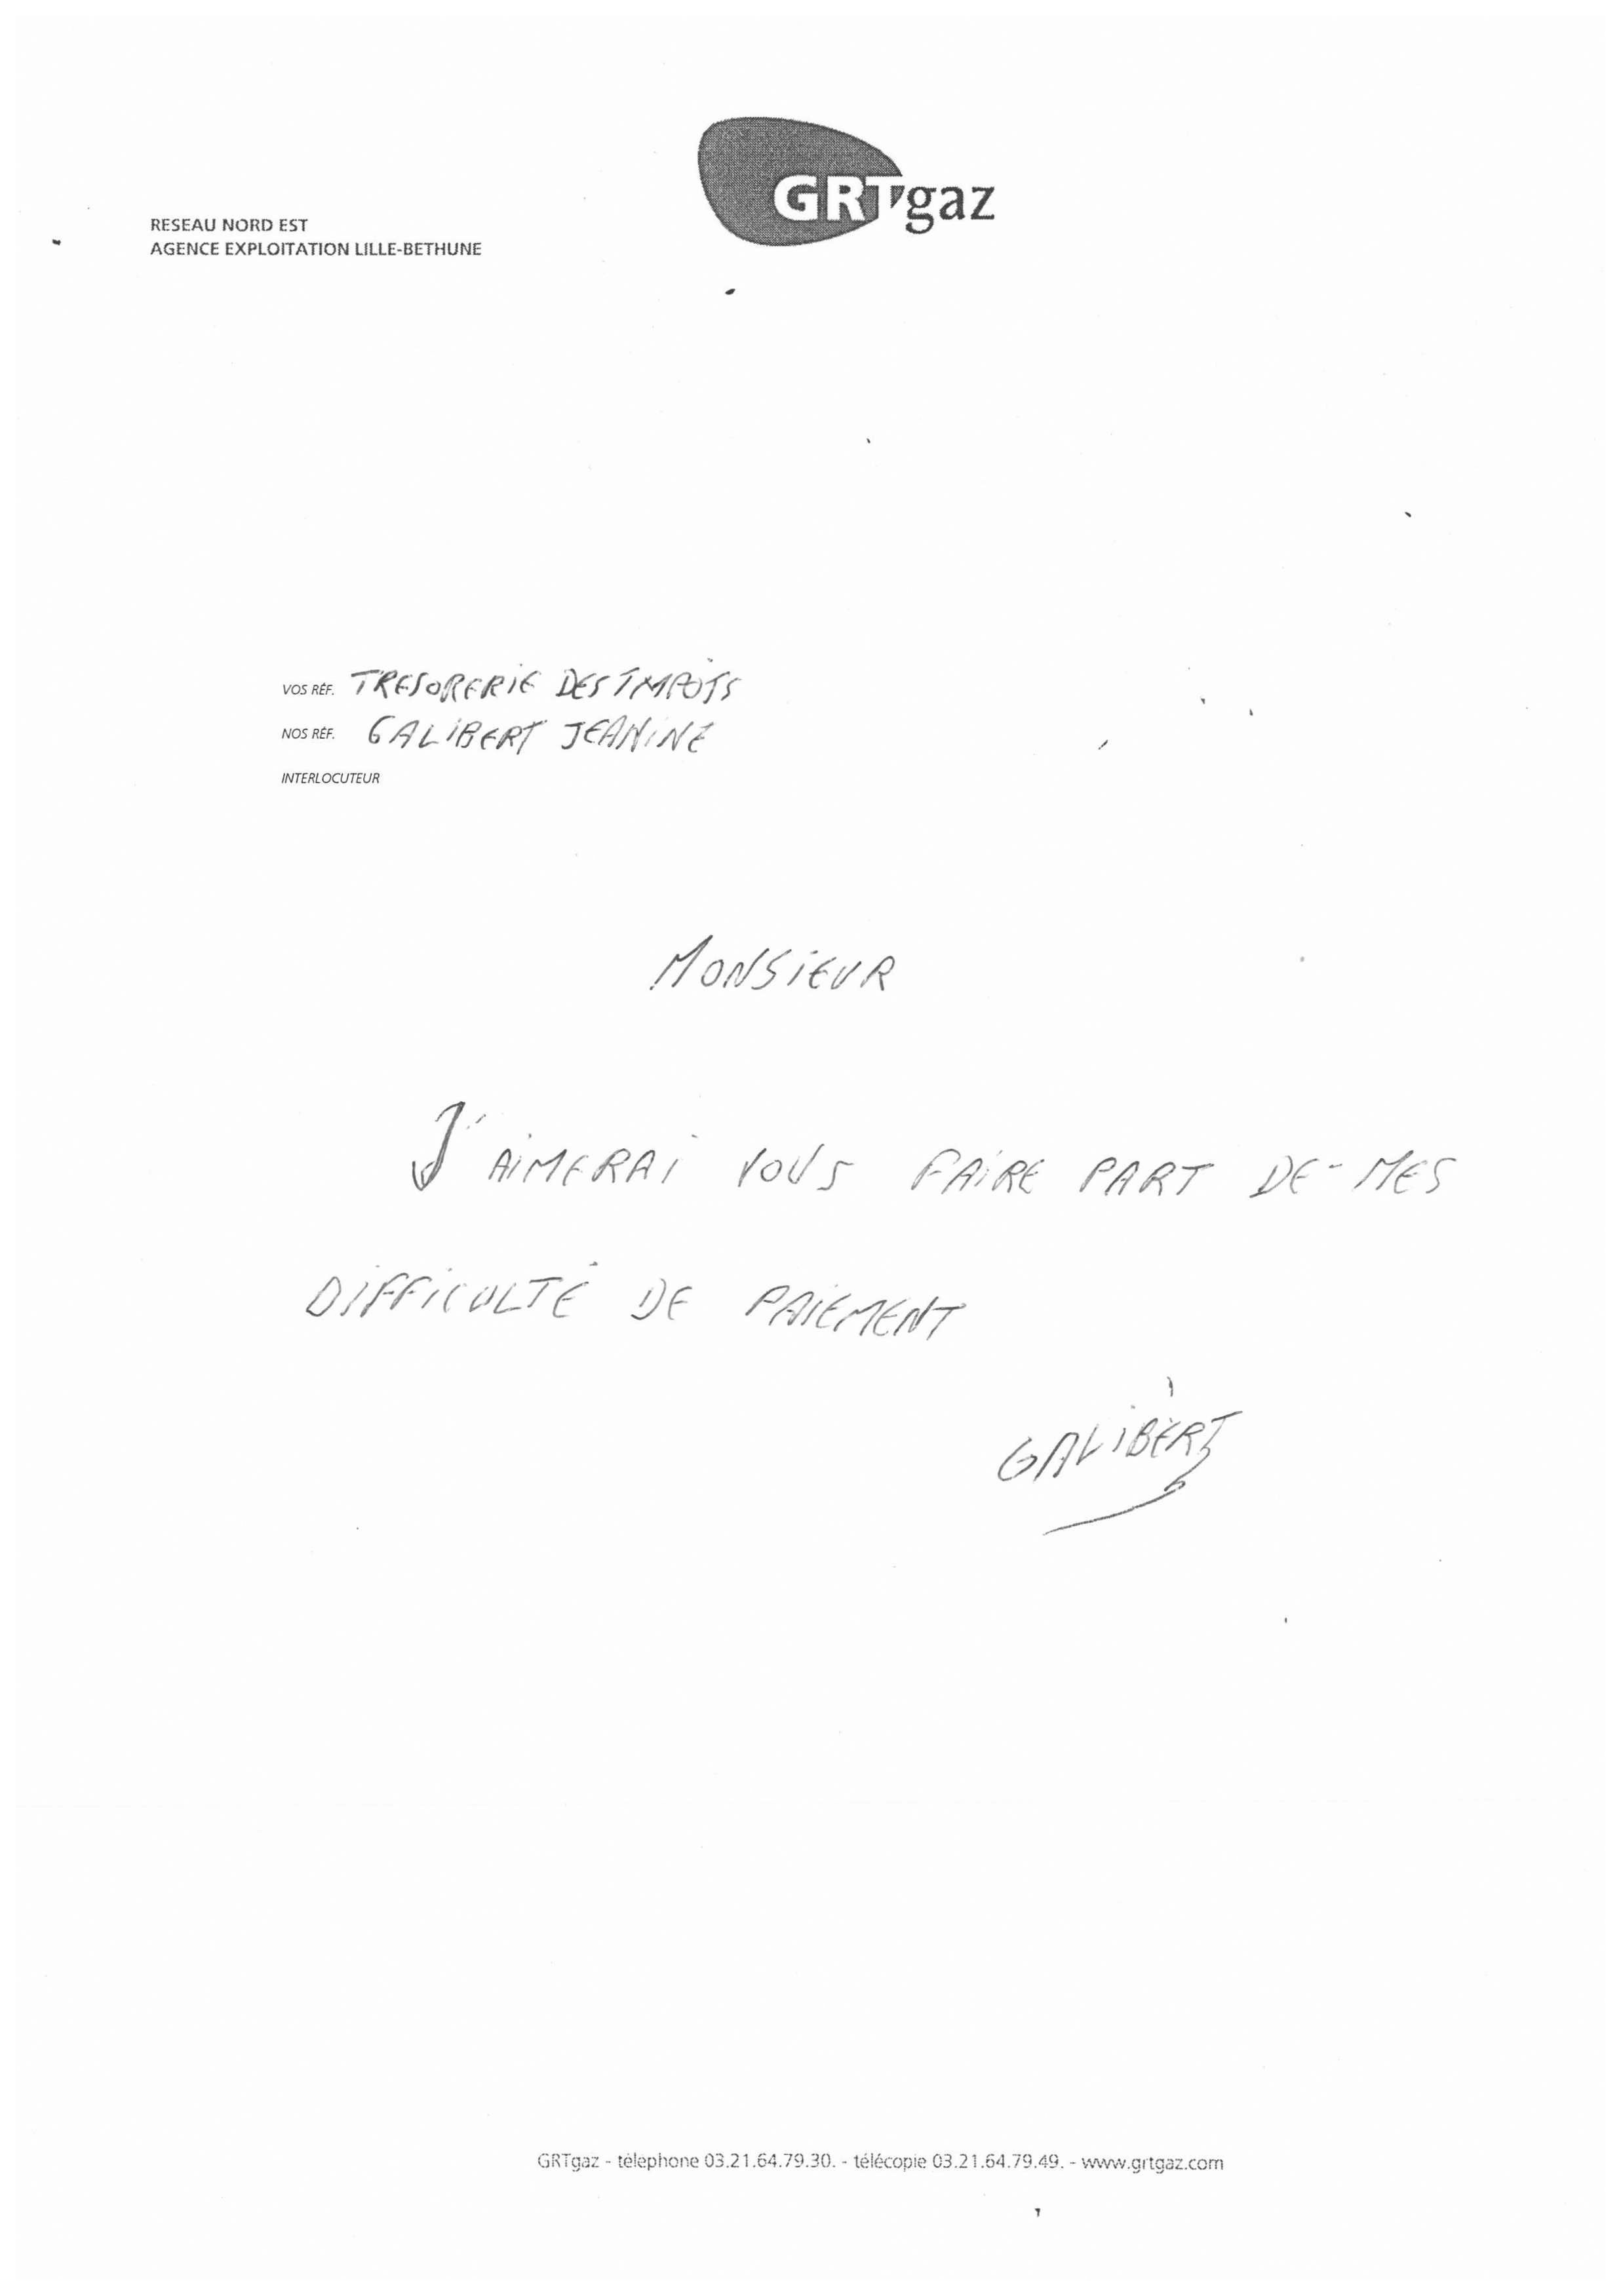 GRTgaz
RESEAU NORD EST
AGENCE EXPLOITATION LILLE-BETHUNE
VOS RÉF. TRESORERIE DES IMPÔTS
NOS RÉF. GALIBERT JEANINE
INTERLOCUTEUR
MONSIEUR
J'AIMERAI VOUS FAIRE PART DE-MES
DIFFICULTÉ DE PAIEMENT
GALIBERT
GRTgaz - téléphone 03.21.64.79.30. - télécopie 03.21.64.79.49. - www.grtgaz.com